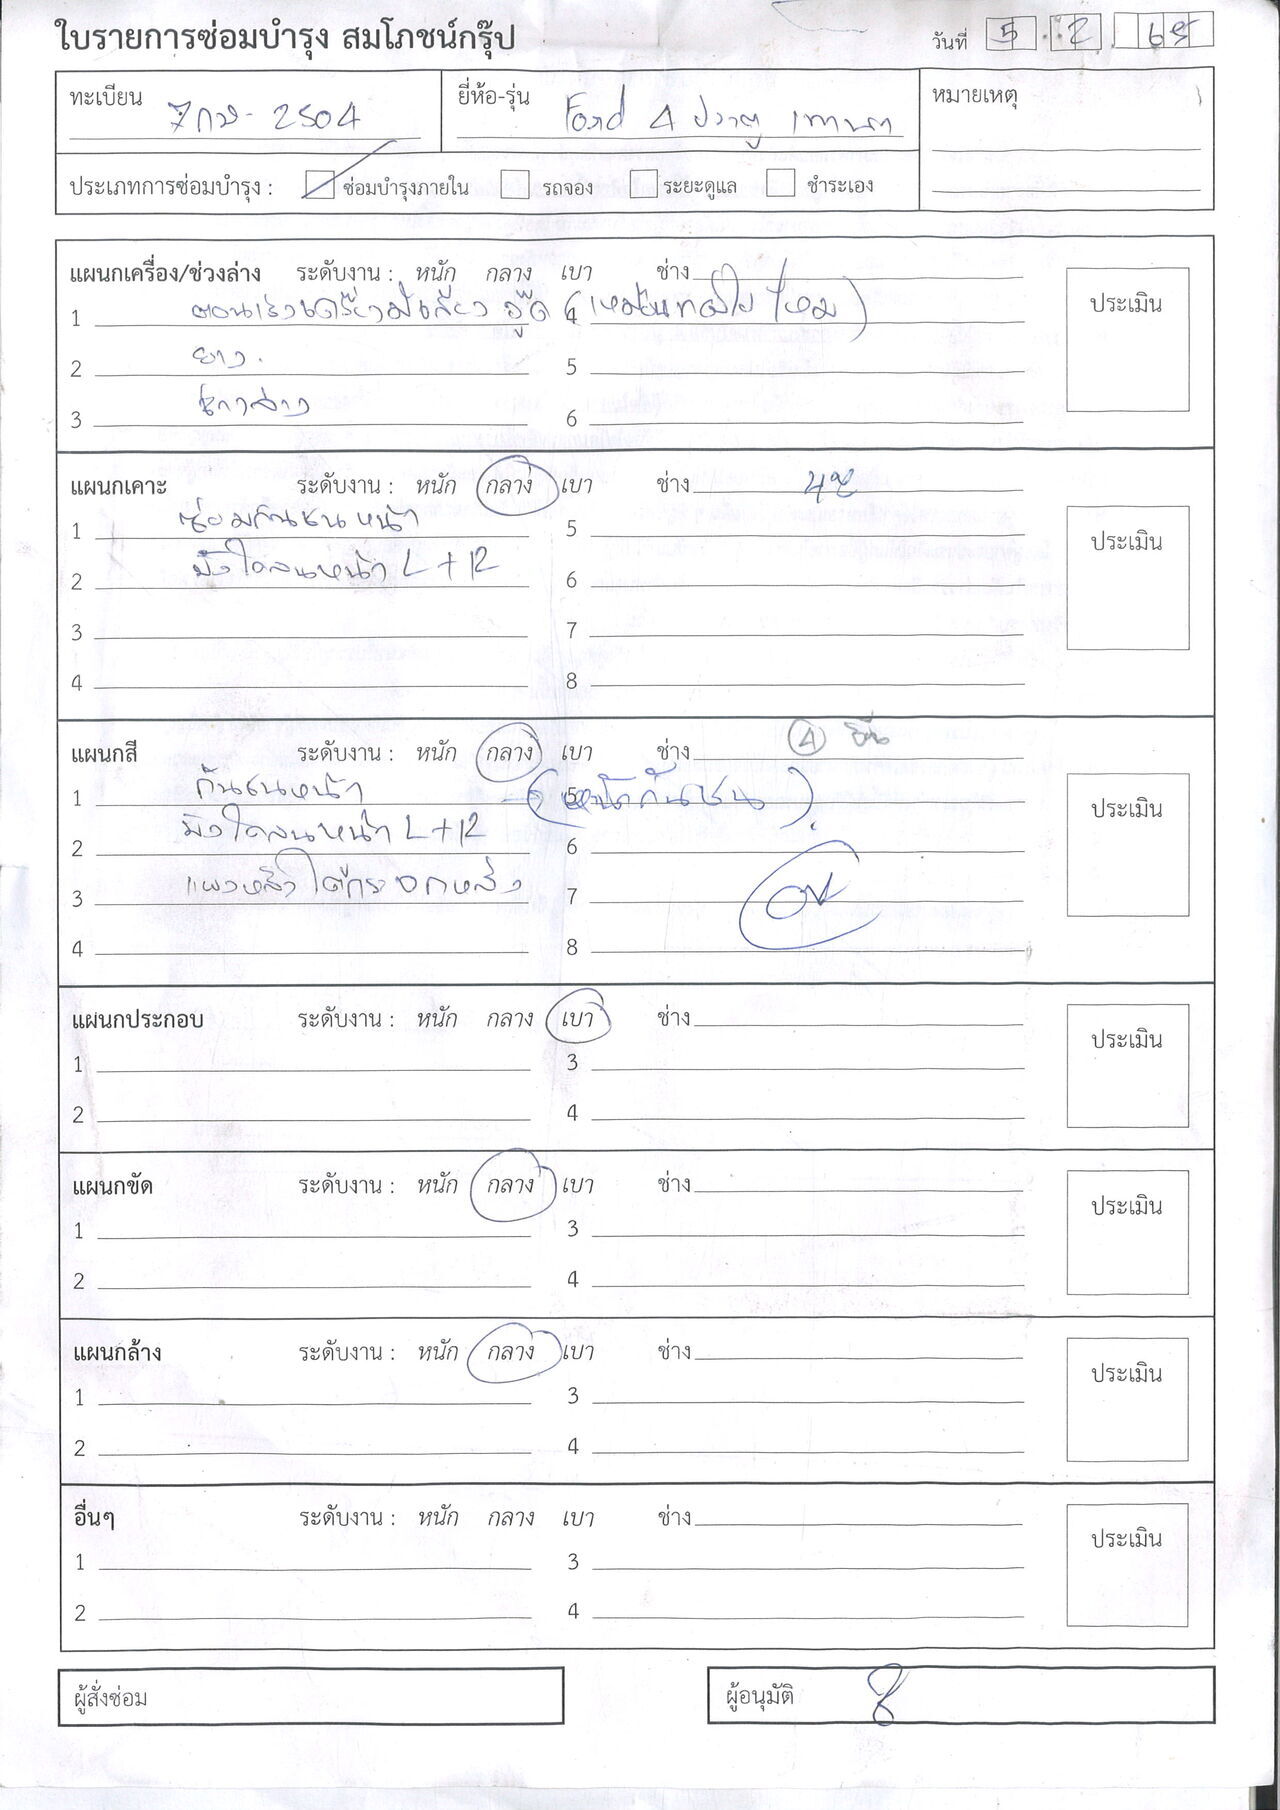 ใบรายการซ่อมบำรุง สมโภชน์กรุ๊ป
วันที่ 5 2 65
ทะเบียน 7กว-2504
ยี่ห้อ-รุ่น Ford 4 ประตู เทานา
หมายเหตุ
ประเภทการซ่อมบำรุง : ซ่อมบำรุงภายใน รถจอง ระยะดูแล ชำระเอง
แผนกเครื่อง/ช่วงล่าง ระดับงาน : หนัก กลาง เบา ช่าง ประเมิน
1 ตอนเร่งเครื่องมีเสียง 4
2 ยาง. 5
3 6
แผนกเคาะ ระดับงาน : หนัก กลาง เบา ช่าง ประเมิน
1 ซ่อมกันชนหน้า 5
2 บังโคลนหน้า L+R 6
3 7
4 8
แผนกสี ระดับงาน : หนัก กลาง เบา ช่าง 4 ประเมิน
1 กันชนหน้า 5 (หน้ากันชน)
2 บังโคลนหน้า L+R 6
3 แผงหลัง ใต้กระจกหลัง 7
4 8
แผนกประกอบ ระดับงาน : หนัก กลาง เบา ช่าง ประเมิน
1 3
2 4
แผนกขัด ระดับงาน : หนัก กลาง เบา ช่าง ประเมิน
1 3
2 4
แผนกล้าง ระดับงาน : หนัก กลาง เบา ช่าง ประเมิน
1 3
2 4
อื่นๆ ระดับงาน : หนัก กลาง เบา ช่าง ประเมิน
1 3
2 4
ผู้สั่งซ่อม
ผู้อนุมัติ